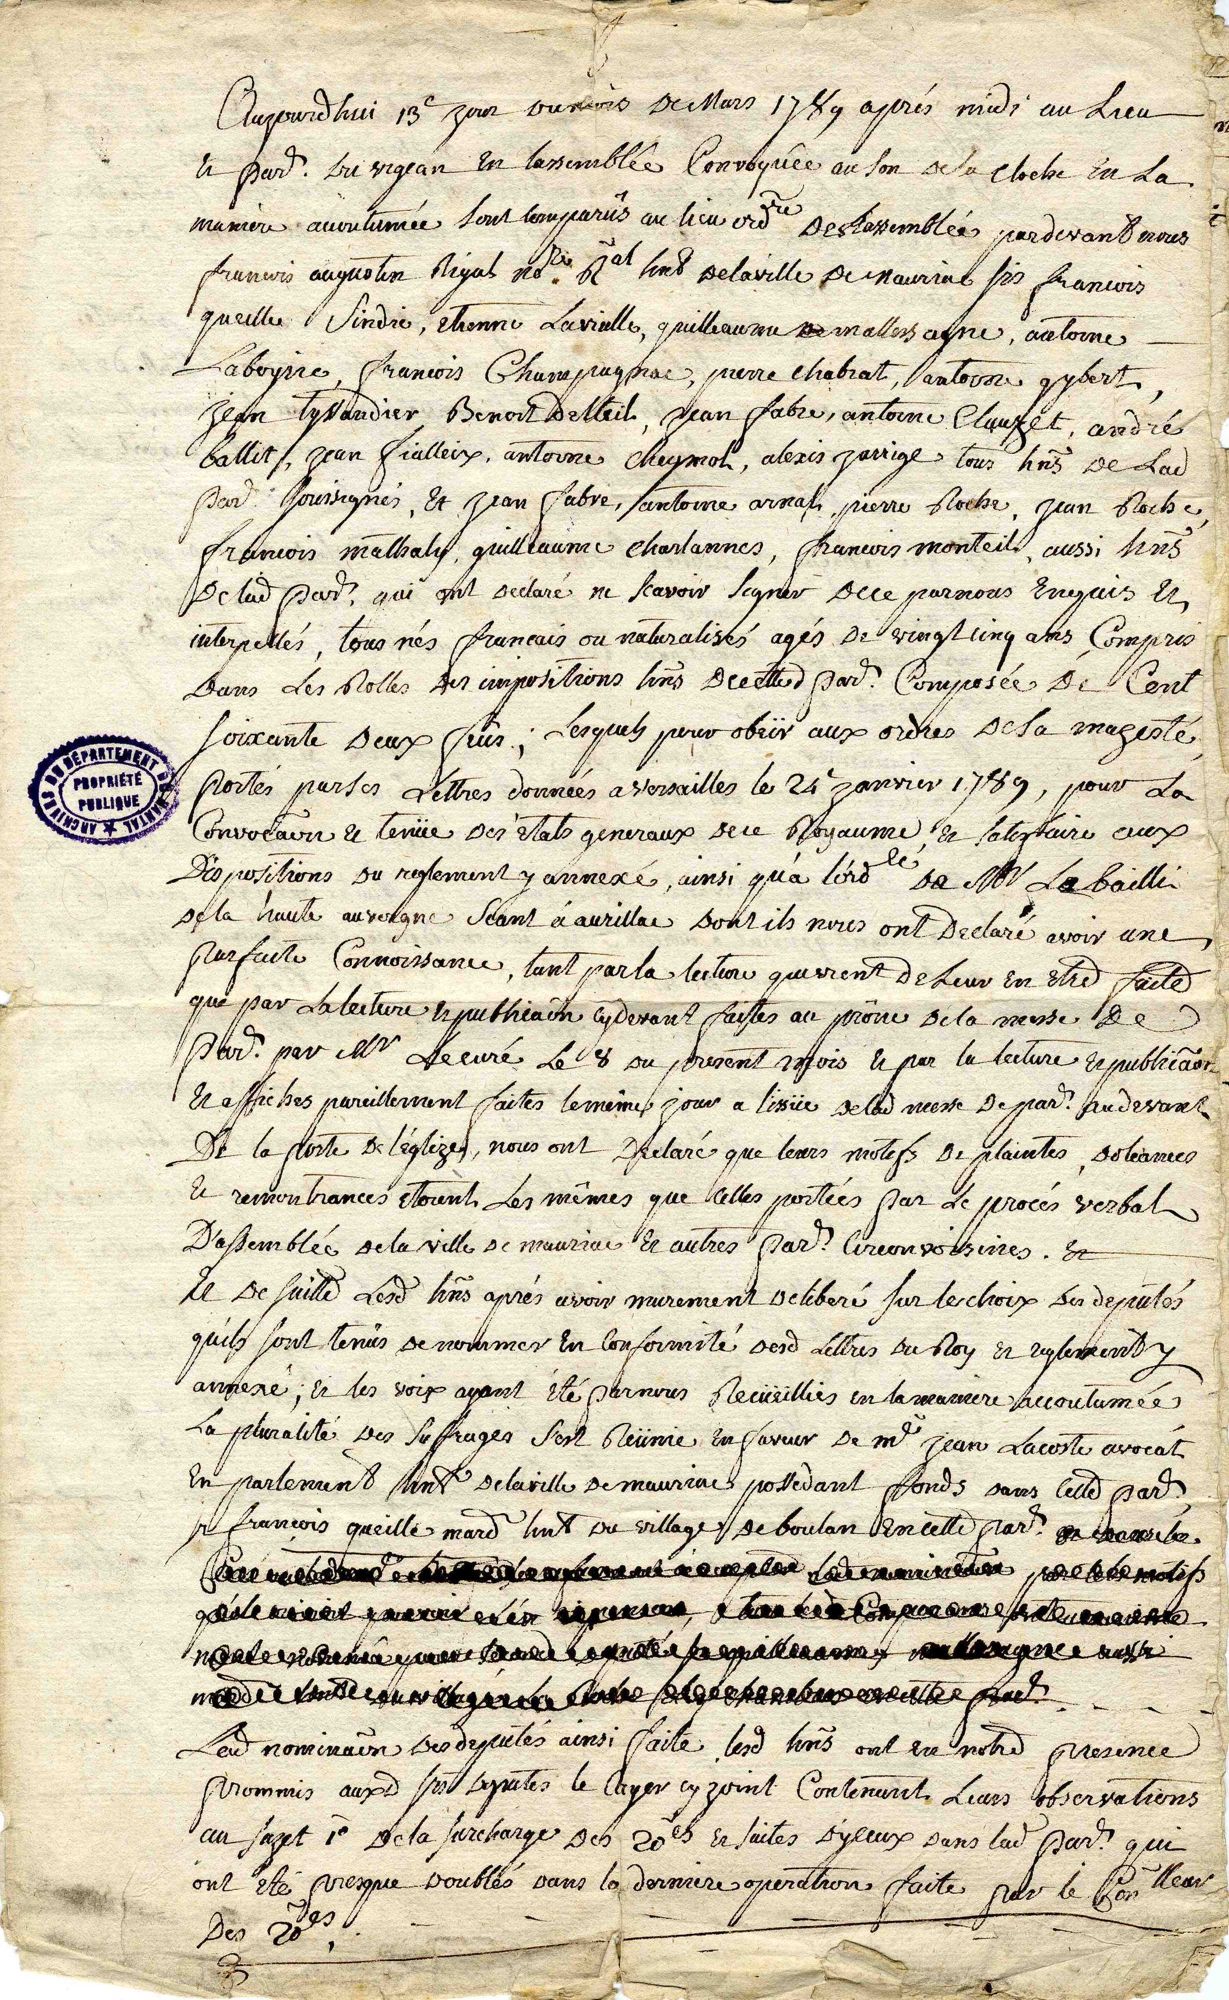 Aujourdhui 13e jour du mois de Mars 1789 aprés midi au Lieu
et par. du vigean en lassemblée Convoquée au son de la cloche en la
maniere acoutumée sont comparûs au lieu ordre de lassemblée pardevant nous
francois augustin Rigal nore Ral hnt de la ville de mauriac srs francois
queille Sindic, etienne Lavialle, guilleaume de mallessagne, antoine
Laboyrie, francois Champagnac, pierre Chabrat, antoine gybert,
jean tyssandier Benoit Delteil, jean fabre, antoine Clauzet, andré
ballet, jean fialleix, antoine cheymol, alexis jarrige tous hns de lad
par. soussignés, et jean fabre, antoine arnal, pierre Roche, jean Roche,
francois mathaly, guilleaume charlannes, francois monteil, aussi hns
de lad par. qui ont declaré ne scavoir signer de ce par nous enquis et
interpellés, tous nés francais ou naturalisés agés de vingt cinq ans Compris
dans les Rolles des impositions hns de cette par. Composée de Cent
soixante deux feus; lesquels pour obeir aux ordres de sa magesté,
portés par ses Lettres données a versailles le 24 janvier 1789, pour la
Convocaon et tenüe des etats generaux de ce Royaume, et satisfaire aux
Dispositions du reglement y annexé, ainsi qu'a l'ord de Mr Le bailli
de la haute auvergne seant á aurillac dont ils nous ont Declaré avoir une
parfaite Connoissance, tant par la lecture qui vient de Leur en etre faite
que par La lecture et publicaon cy devant faites au prône de la messe de
par. par Mr Le curé le 8 du present mois et par la lecture et publicaon
et affiches pareillement faites le même jour a lissüe de lad messe de par. au devant
De la porte de l'eglize, nous ont Declaré que leurs motifs de plaintes, doleances
et remontrances etoient Les mêmes que celles portées par Le procés verbal
D'assemblée de la ville de mauriac et autres par. circonvoisines. et
et de suitte Lesd hns aprés avoir murement deliberé sur le choix des deputés
qu'ils sont tenûs de nommer en Conformité desd Lettres du Roy et reglement y
annexé; et les voix ayant été par nous Recüeillies en la maniere accoutumée
La pluralité des suffrages s'est Réünie en faveur de me jean Lacoste avocât
en parlement hnt de la ville de mauriac possedant fonds dans cette par.
sr francois queille mard hnt du village de boulan en cette par.
Lad nominaon des deputés ainsi faite lesd hns ont en notre presence
prommis auxd srs deputés le cayer cy joint Contenant Leurs observations
au sujet 1° de la surcharge des 20es et faites d'yceux dans lad par. qui
ont été presque doublés dans la derniere operation faite par le Conlleur
Des 20es.
ARCHIVES DU DÉPARTEMENT DU CANTAL
PROPRIÉTÉ
PUBLIQUE